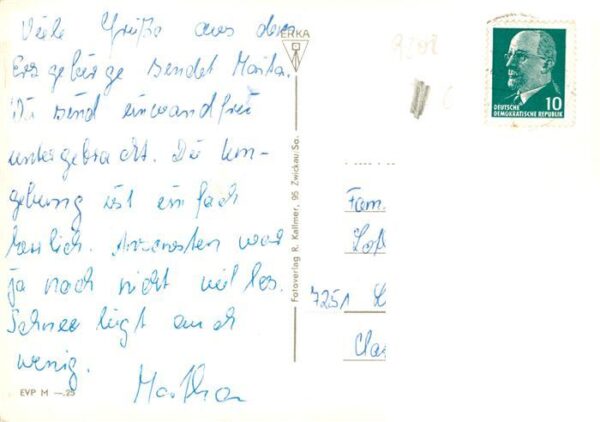 Viele Grüße aus dem
Erzgebirge sendet Marta.
Wir sind einwandfrei
untergebracht. Die Um-
gebung ist einfach
herrlich. Ansonsten war
ja noch nicht viel los.
Schnee liegt auch
wenig.
Martha
EVP M —.25
ERKA
Fotoverlag R. Kallmer, 95 Zwickau Sa.
10
DEUTSCHE
DEMOKRATISCHE REPUBLIK
Fam.
7251